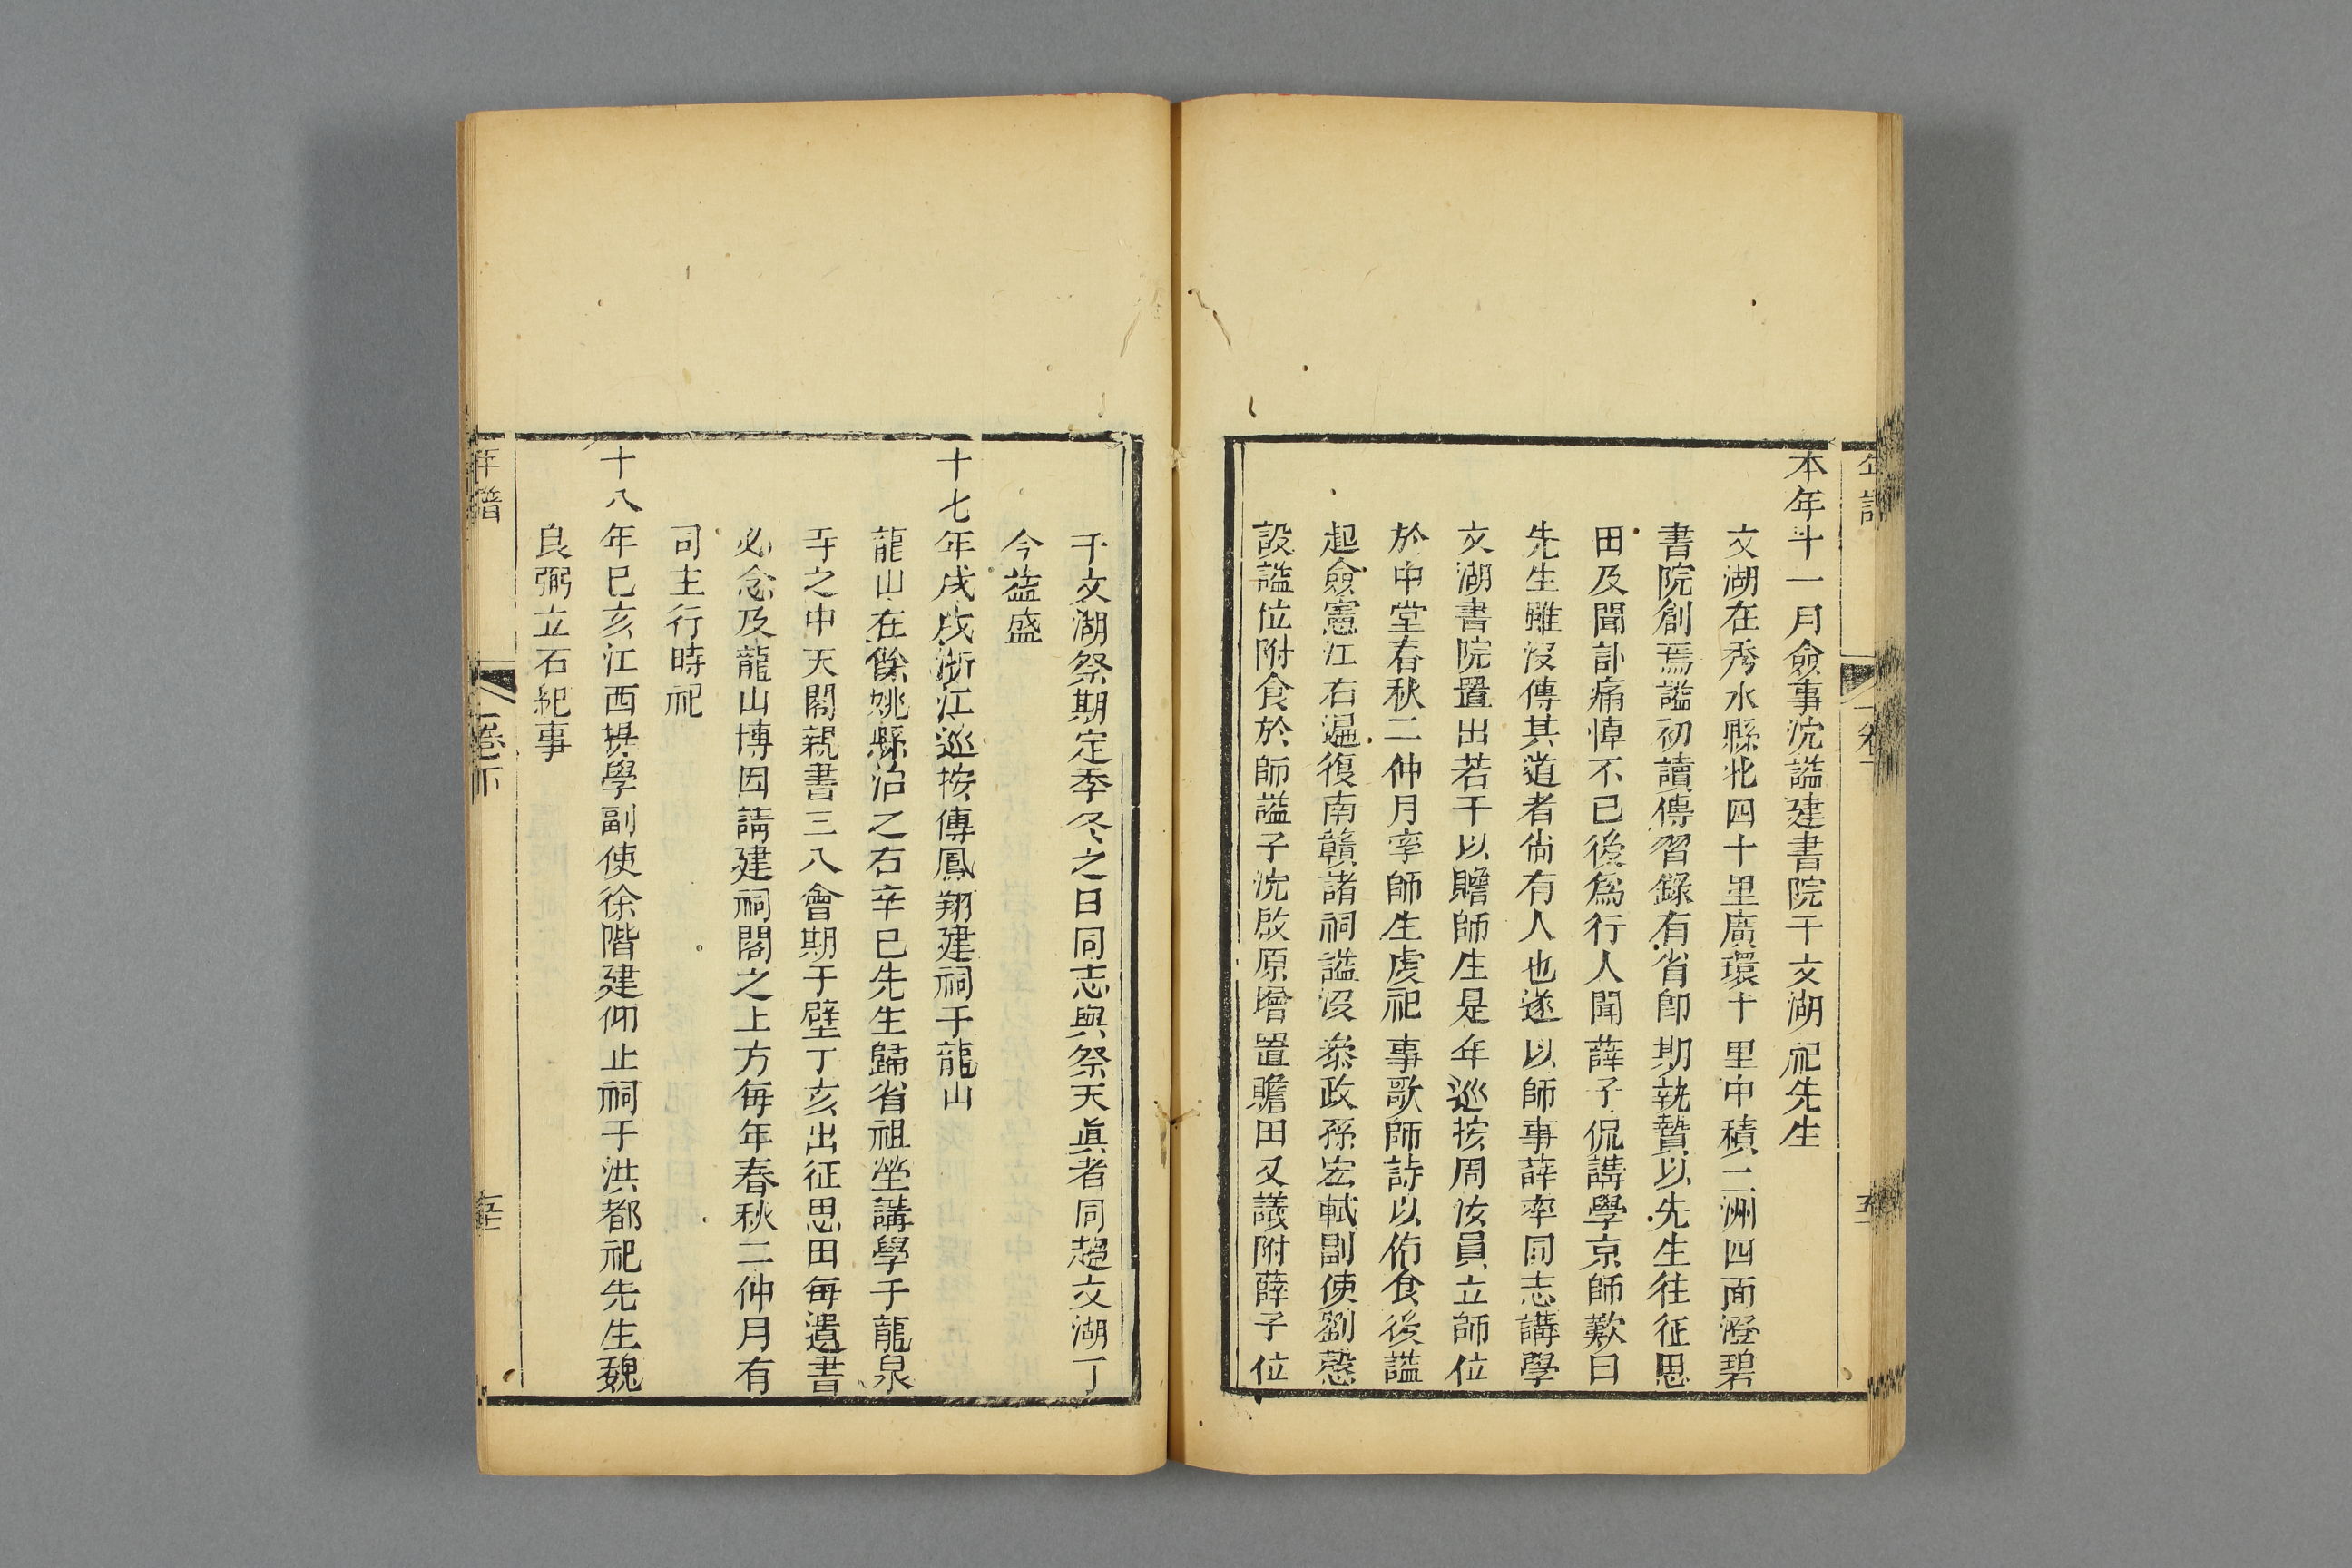 本年十一月僉事沈謐建書院于文湖祀先生
文湖在秀水縣北四十里廣環十里中積二洲四面澄碧
書院創焉謐初讀傳習錄有省卽期執贄以先生往征思
田及聞訃痛悼不已後爲行人聞薛子侃講學京師歎曰
先生雖沒傳其道者尙有人也遂以師事薛率同志講學
文湖書院置田若干以贍師生是年巡按周汝員立師位
於中堂春秋二仲月率師生虔祀事歌師詩以侑食後謐
起僉憲江右遍復南贛諸祠謐沒叅政孫宏軾副使劉慤
設謐位附食於師謐子沈啟原增置贍田又議附薛子位
于文湖祭期定季冬之日同志與祭天眞者同趨文湖丁
今益盛
十七年戊戌浙江巡按傳鳳翔建祠于龍山
龍山在餘姚縣治之右辛巳先生歸省祖塋講學于龍泉
寺之中天閣親書三八會期于壁丁亥出征思田每遺書
必念及龍山博因請建祠閣之上方每年春秋二仲月有
司主行時祀
十八年巳亥江西提學副使徐階建仰止祠于洪都祀先生魏
良弼立石紀事
年譜
卷下